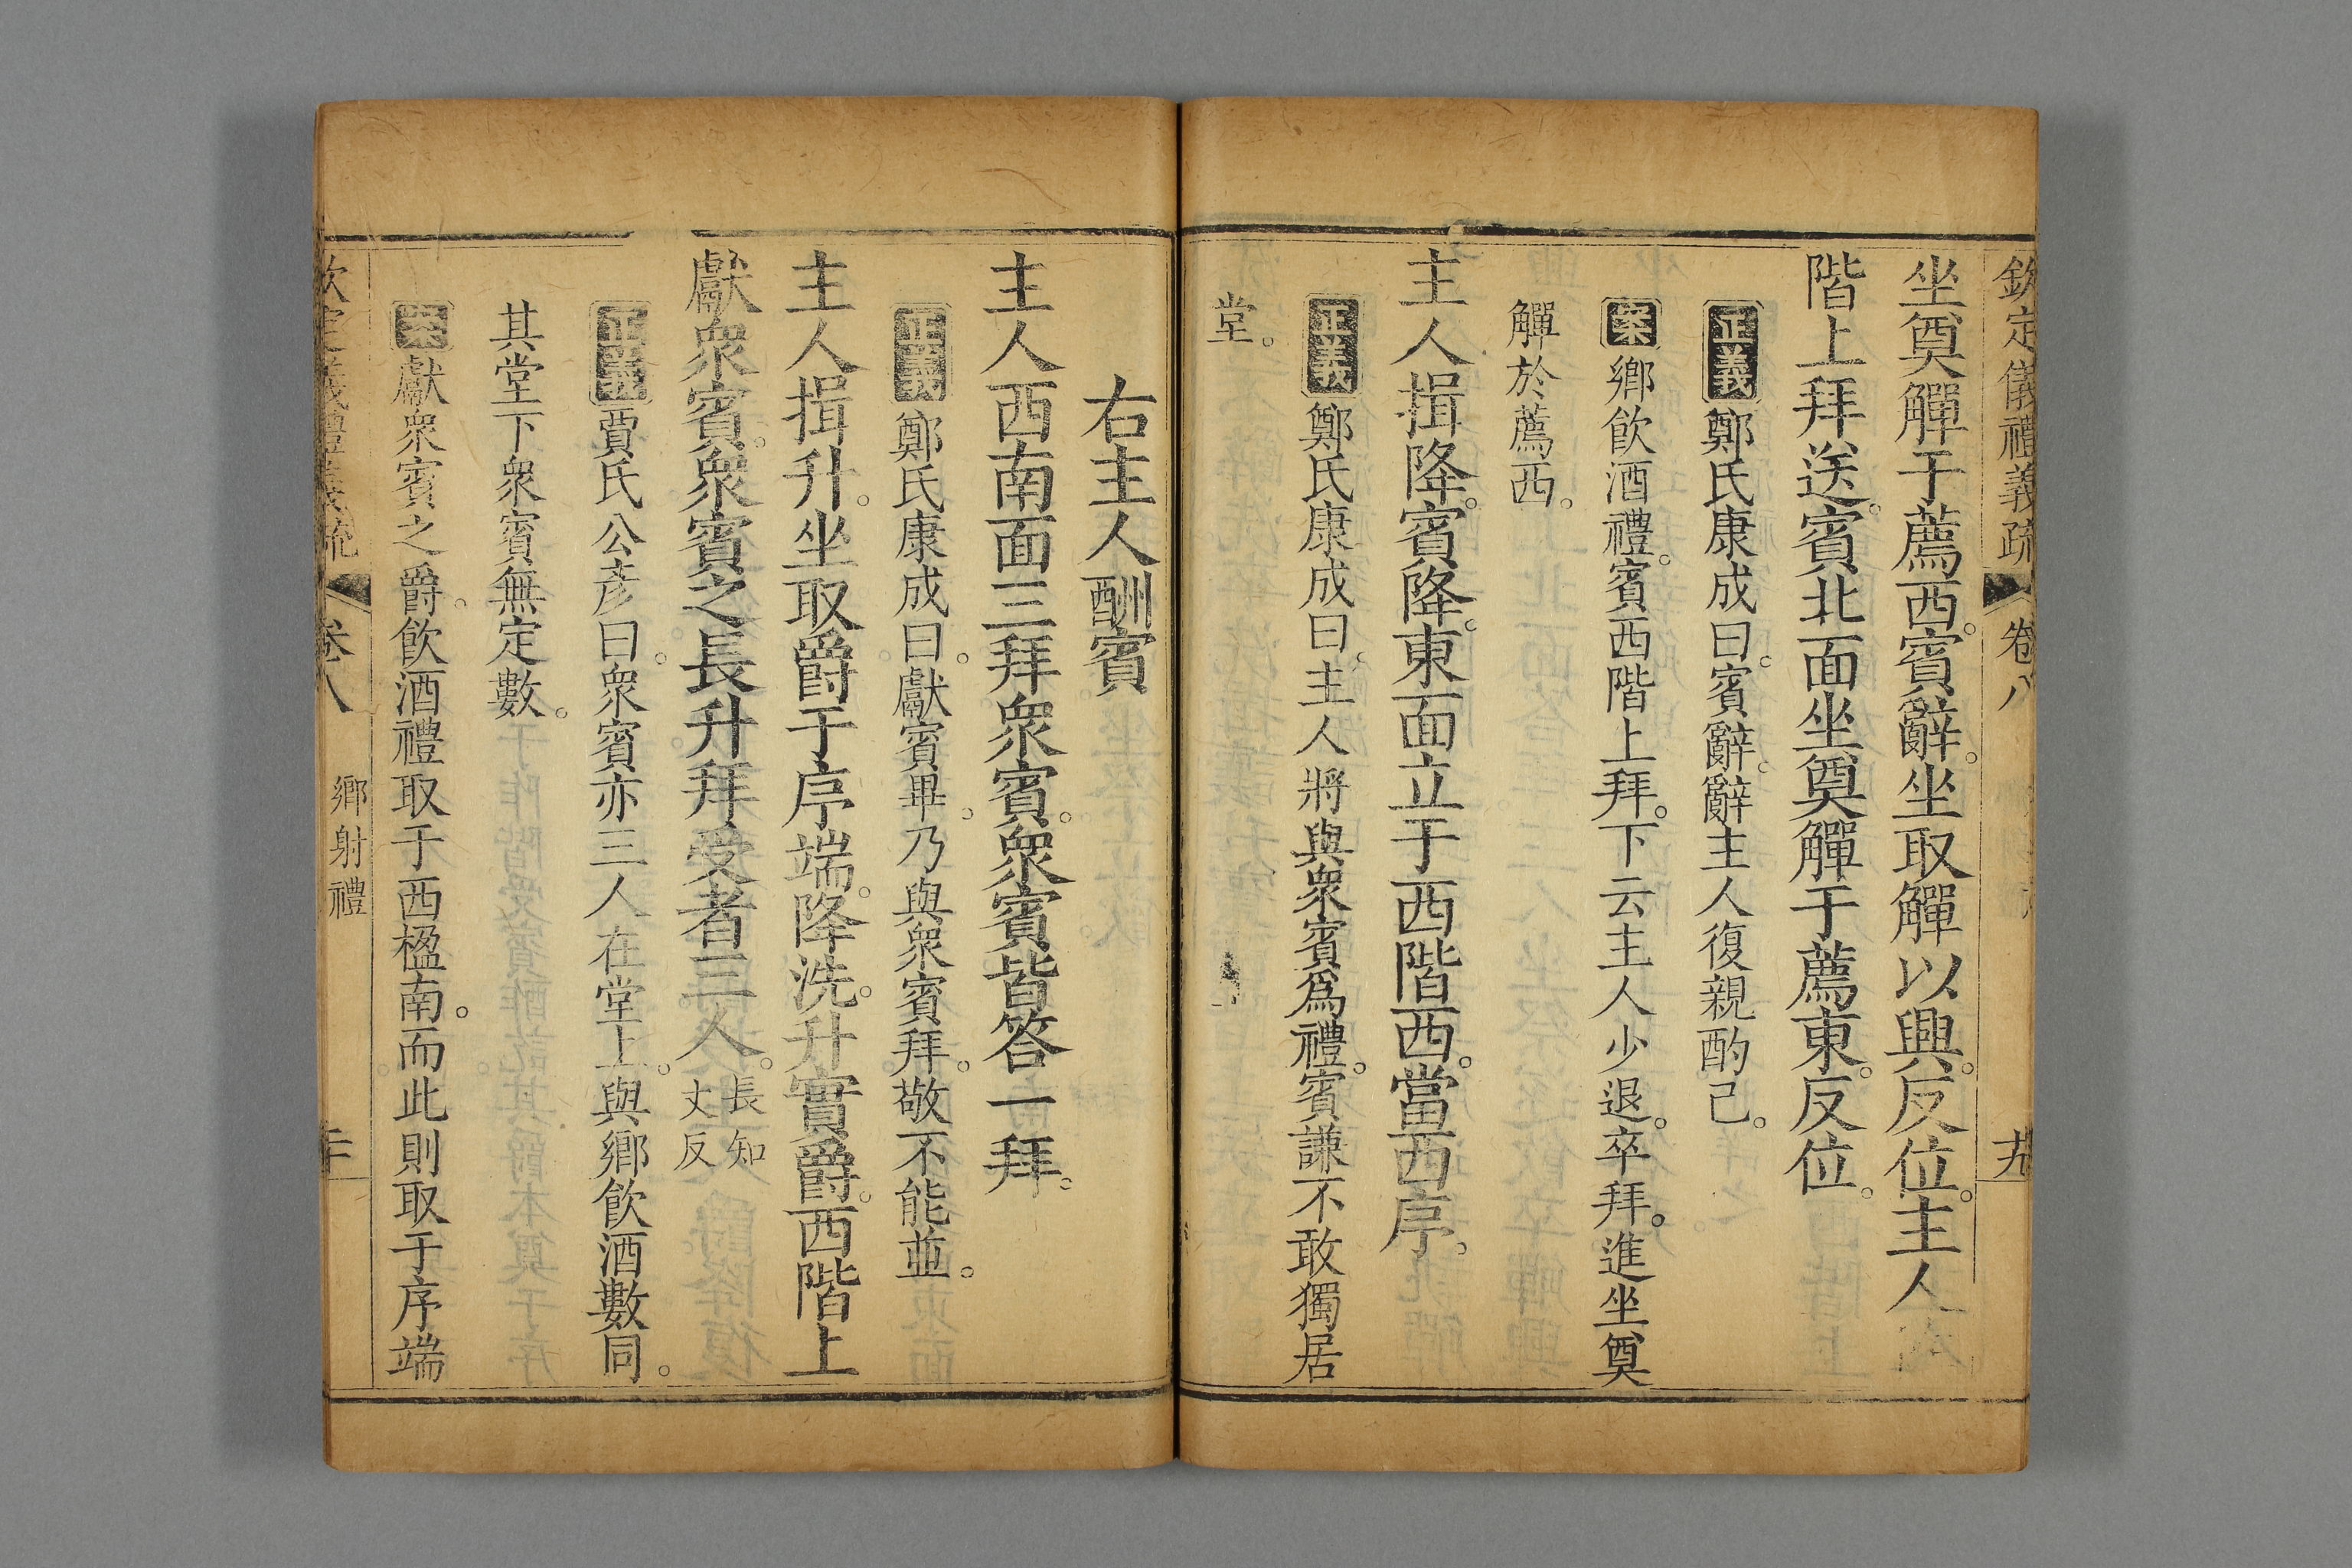 欽定儀禮義疏 卷八 十九
坐奠觶于薦西。賓辭。坐取觶以興。反位。主人
階上拜送。賓北面坐奠觶于薦東。反位。
正義 鄭氏康成曰。賓辭。辭主人復親酌己。
案 鄉飲酒禮。賓西階上拜。下云主人少退。卒拜。進坐奠
觶於薦西。
主人揖降。賓降。東面立于西階西。當西序。
正義 鄭氏康成曰。主人將與衆賓爲禮。賓謙不敢獨居
堂。
右主人酬賓
主人西南面三拜衆賓。衆賓皆答一拜。
正義 鄭氏康成曰。獻賓畢。乃與衆賓拜。敬不能並。
主人揖升。坐取爵于序端。降洗。升實爵。西階上
獻衆賓。衆賓之長升拜受者三人。長知丈反
正義 賈氏公彦曰。衆賓亦三人在堂上。與鄉飲酒數同。
其堂下衆賓無定數。
案 獻衆賓之爵。飲酒禮取于西楹南。而此則取于序端
欽定儀禮義疏 卷八 鄉射禮 二十